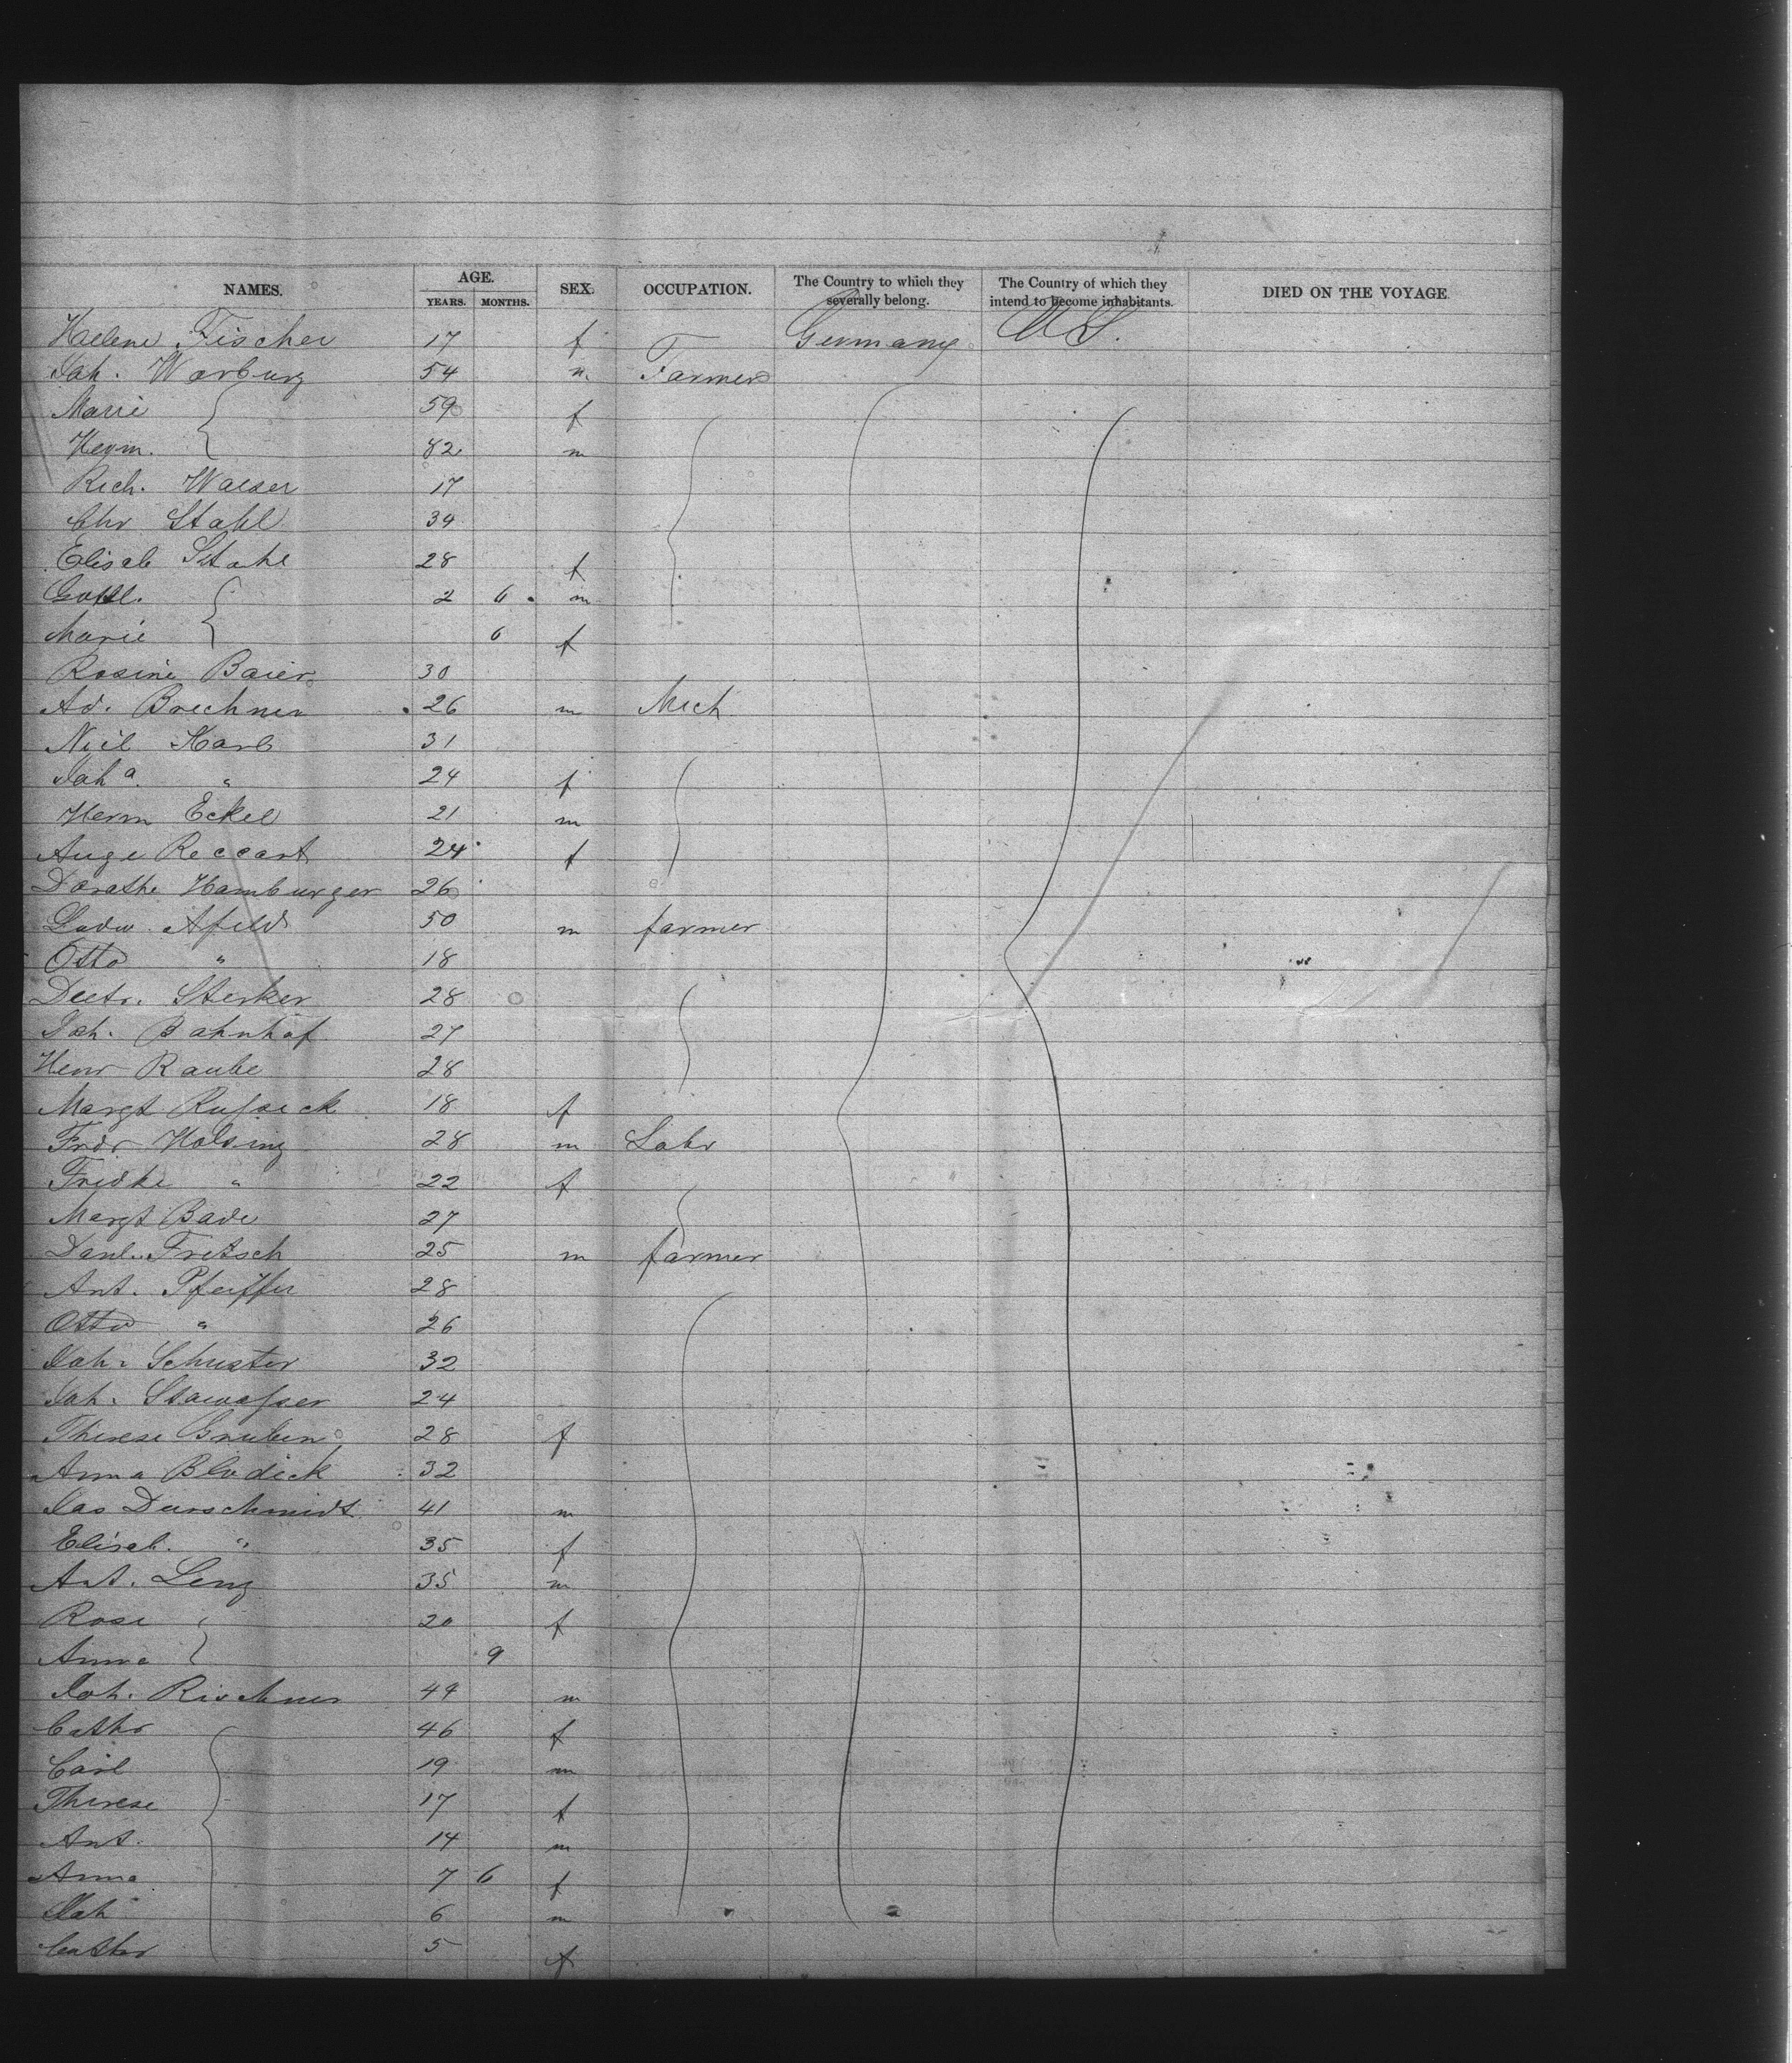 NAMES. AGE. SEX. OCCUPATION. The Country to which they severally belong. The Country of which they intend to become inhabitants. DIED ON THE VOYAGE
YEARS. MONTHS.
Helene Fischer 17 f Germany U S.
Joh. Warburg 54 m Farmer
Marie 59 f
Herm. 82 m
Rich. Walser 17
Chr Stahl 34
Elisab Stahl 28 f
Gottl. 2 6 m
Marie 6 f
Rosine Baier 30
Ad. Brechner 26 m Mech
Niel Karb 31
Joha. " 24 f
Herm Eckel 21 m
Auge Reccart 24 f
Dorathe Hamburger 26
Ludw. Afeld 50 m farmer
Otto " 18
Dietr. Sterker 28
Joh. Bahnhof 27
Henr Raube 28
Margt Rufseck 18 f
Fridr Holsing 28 m Labr
Fridke " 22 f
Margt Bade 27
Danl. Fritsch 25 m farmer
Ant. Pfeiffer 28
Otto " 26
Joh. Schuster 32
Joh. 24
Therese Gruben 28 f
Anna Blodick 32
Jas Durschmidt 41 m
Elisab. " 35 f
Ant. Leng 35 m
Rose 20 f
Anna 9
Joh. Rischner 49 m
Cathr 46 f
Carl 19 m
Therese 17 f
Ant. 14 m
Anna 7 6 f
Joh 6 m
Cathr 5 f